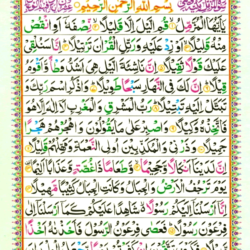 بِسْمِ اللهِ الرَّحْمٰنِ الرَّحِيْمِ
يٰٓاَيُّهَا الْمُزَّمِّلُ قُمِ الَّيْلَ اِلَّا قَلِيْلًا نِّصْفَهٗٓ اَوِ انْقُصْ
مِنْهُ قَلِيْلًا اَوْ زِدْ عَلَيْهِ وَرَتِّلِ الْقُرْاٰنَ تَرْتِيْلًا اِنَّا سَنُلْقِيْ
عَلَيْكَ قَوْلًا ثَقِيْلًا اِنَّ نَاشِئَةَ الَّيْلِ هِيَ اَشَدُّ وَطْاً وَّاَقْوَمُ
قِيْلًا اِنَّ لَكَ فِي النَّهَارِ سَبْحًا طَوِيْلًا وَاذْكُرِ اسْمَ رَبِّكَ وَ
تَبَتَّلْ اِلَيْهِ تَبْتِيْلًا رَبُّ الْمَشْرِقِ وَالْمَغْرِبِ لَآ اِلٰهَ اِلَّا هُوَ
فَاتَّخِذْهُ وَكِيْلًا وَاصْبِرْ عَلٰى مَا يَقُوْلُوْنَ وَاهْجُرْهُمْ هَجْرًا
جَمِيْلًا وَذَرْنِيْ وَالْمُكَذِّبِيْنَ اُولِي النَّعْمَةِ وَمَهِّلْهُمْ قَلِيْلًا
اِنَّ لَدَيْنَآ اَنْكَالًا وَّجَحِيْمًا وَّطَعَامًا ذَا غُصَّةٍ وَّعَذَابًا اَلِيْمًا
يَوْمَ تَرْجُفُ الْاَرْضُ وَالْجِبَالُ وَكَانَتِ الْجِبَالُ كَثِيْبًا مَّهِيْلًا
اِنَّآ اَرْسَلْنَآ اِلَيْكُمْ رَسُوْلًا شَاهِدًا عَلَيْكُمْ كَمَآ اَرْسَلْنَآ اِلٰى
فِرْعَوْنَ رَسُوْلًا فَعَصٰى فِرْعَوْنُ الرَّسُوْلَ فَاَخَذْنٰهُ اَخْذًا